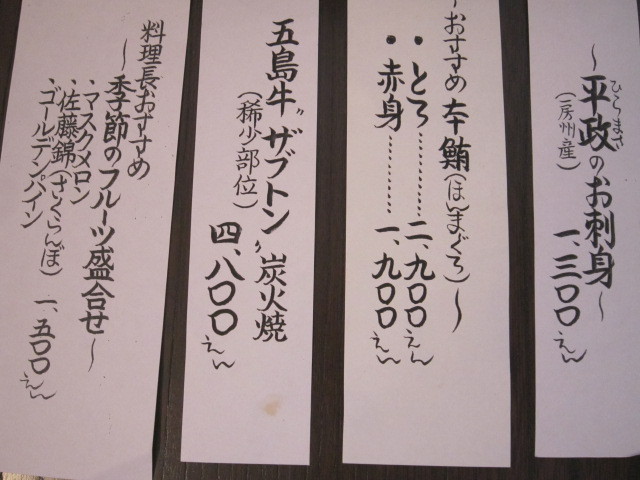 ～平政のお刺身～
ひらまさ
(房州産)
一、三〇〇えん
～おすすめ 本鮪(ほんまぐろ)～
・とろ…………二、九〇〇えん
・赤身…………一、九〇〇えん
五島牛〝ザブトン〟炭火焼
(稀少部位)
四、八〇〇えん
料理長おすすめ
～季節のフルーツ盛合せ～
・マスクメロン
・佐藤錦(さくらんぼ)
・ゴールデンパイン
一、五〇〇えん